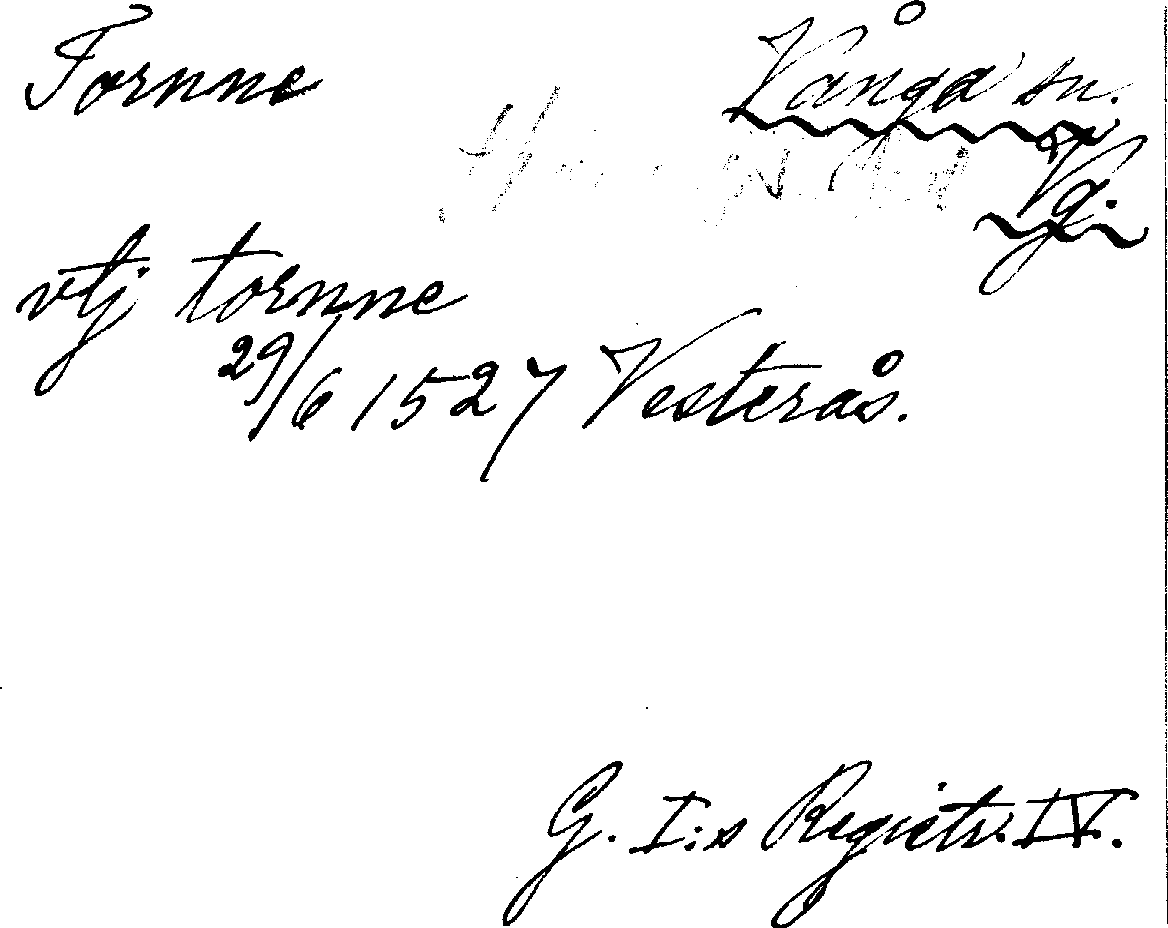 Tornne
Vånga sn.
Vg.
vtj tornne
29/6 1527 Vesterås.
G. I:s Registr. IV.